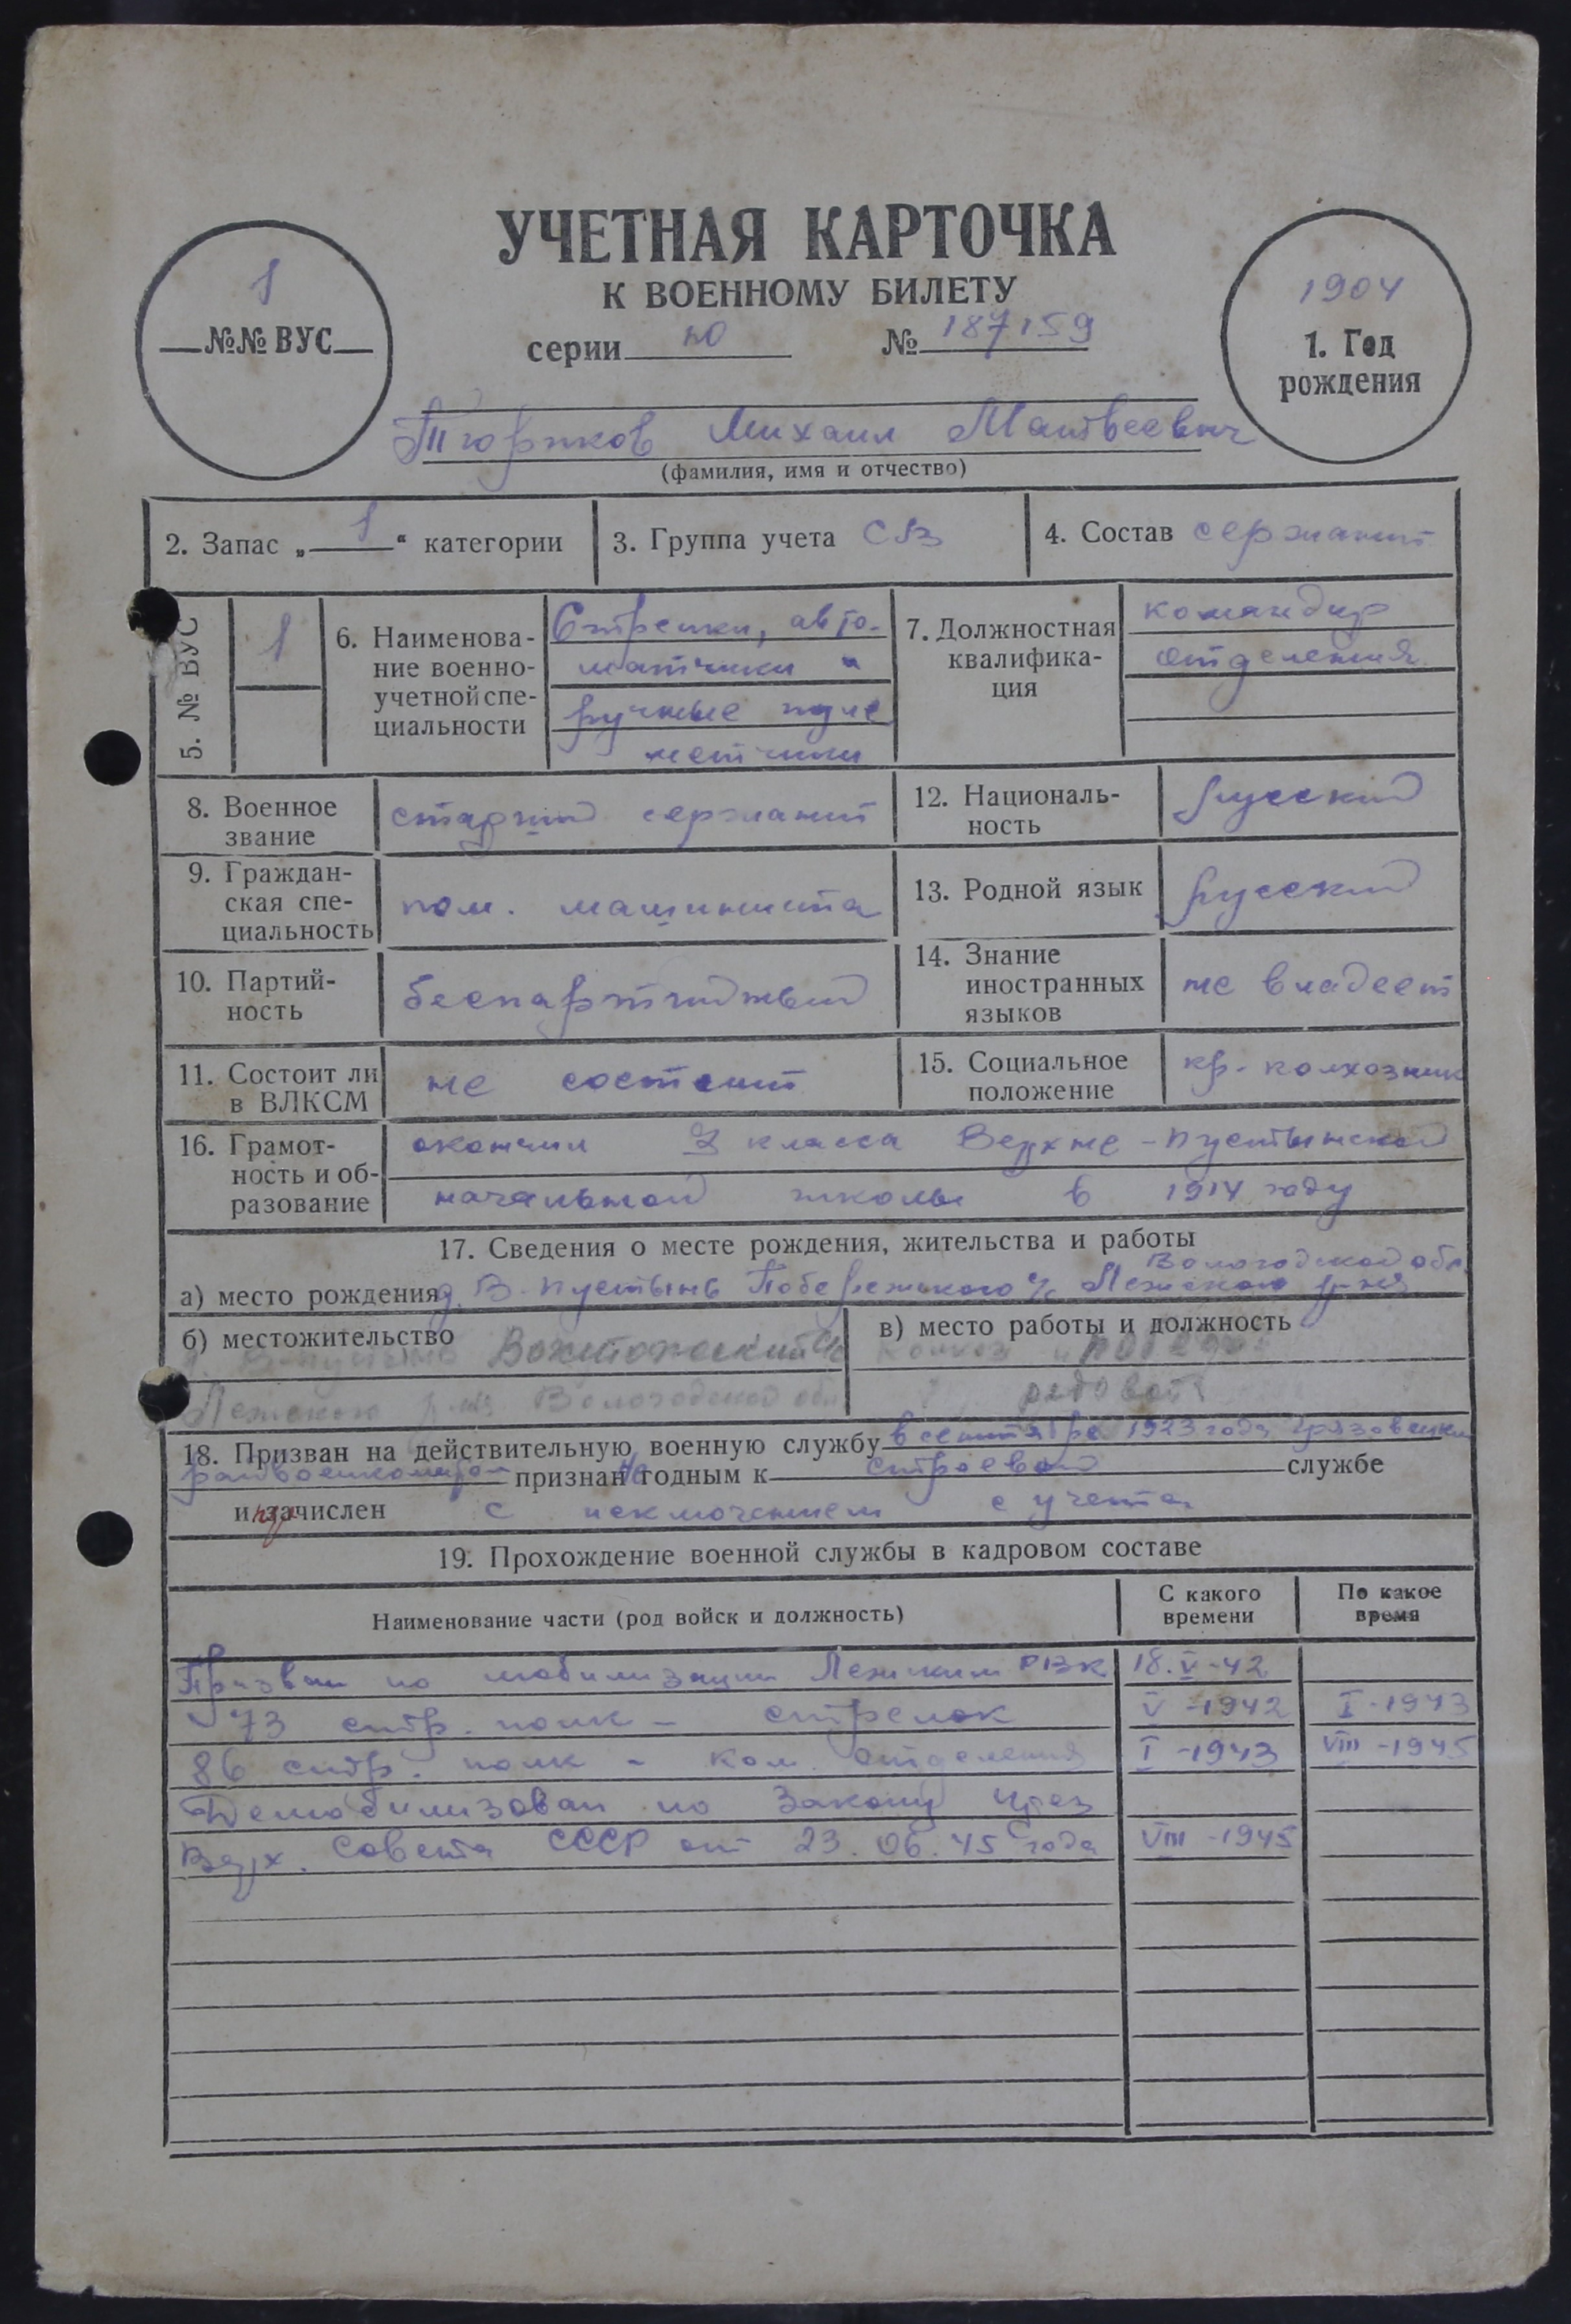 УЧЕТНАЯ КАРТОЧКА
К ВОЕННОМУ БИЛЕТУ
серии № 187159
1
№№ ВУС
1904
1. Год
рождения
Михаил Матвеевич
(фамилия, имя и отчество)
2. Запас „1“ категории
3. Группа учета СВ
4. Состав сержант
5. № ВУС
1
6. Наименова-
ние военно-
учетной спе-
циальности
Стрелки, авто-
матчики и
ручные пуле
метчики
7. Должностная
квалифика-
ция
командир
отделения
8. Военное
звание
старший сержант
12. Националь-
ность
русский
9. Граждан-
ская спе-
циальность
пом. машиниста
13. Родной язык
русский
10. Партий-
ность
беспартийный
14. Знание
иностранных
языков
не владеет
11. Состоит ли
в ВЛКСМ
не состоит
15. Социальное
положение
кр. колхозник
16. Грамот-
ность и об-
разование
окончил 3 класса Верхне-Пустынской
начальной школы в 1914 году
17. Сведения о месте рождения, жительства и работы
Вологодской обл.
а) место рождения д. В-Пустынь Побережского с/с Лежского р-на
б) местожительство
Вожтожский с/с
Лежского р-на Вологодской обл
в) место работы и должность
колхоз
рядовой
18. Призван на действительную военную службу в сентябре 1923 года Грязовецким
райвоенкоматом признан не годным к строевой службе
и зачислен с исключением с учета
19. Прохождение военной службы в кадровом составе
Наименование части (род войск и должность)
С какого
времени
По какое
время
Призван по мобилизации Лежским РВК 18.V-42
73 стр. полк - стрелок V-1942 I-1943
86 стр. полк - ком. отделения I-1943 VIII-1945
Демобилизован по Закону През
Верх. Совета СССР от 23.06.45 года VIII-1945